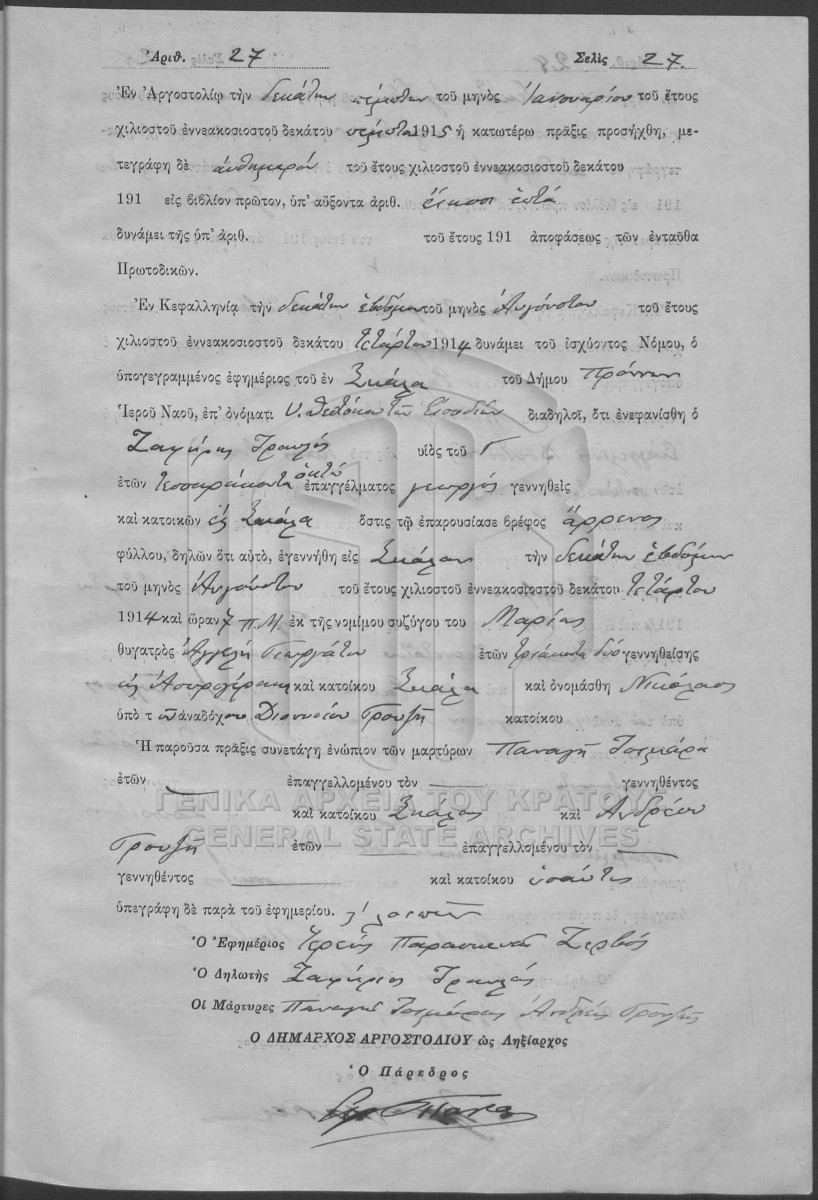 Ἀριθ. 27 Σελὶς 27
Ἐν Ἀργοστολίῳ τὴν δεκάτην πέμπτην τοῦ μηνὸς Ἰανουαρίου τοῦ ἔτους
χιλιοστοῦ ἐννεακοσιοστοῦ δεκάτου πέμπτου 1915 ἡ κατωτέρω πρᾶξις προσήχθη, με-
τεγράφη δὲ αὐθημερόν τοῦ ἔτους χιλιοστοῦ ἐννεακοσιοστοῦ δεκάτου
191 εἰς βιβλίον πρῶτον, ὑπ' αὔξοντα ἀριθ. εἴκοσι ἑπτά
δυνάμει τῆς ὑπ' ἀριθ. τοῦ ἔτους 191 ἀποφάσεως τῶν ἐνταῦθα
Πρωτοδικῶν.
Ἐν Κεφαλληνίᾳ τὴν δεκάτην ἑβδόμην τοῦ μηνὸς Αὐγούστου τοῦ ἔτους
χιλιοστοῦ ἐννεακοσιοστοῦ δεκάτου τετάρτου 1914 δυνάμει τοῦ ἰσχύοντος Νόμου, ὁ
ὑπογεγραμμένος ἐφημέριος τοῦ ἐν Σκάλᾳ τοῦ Δήμου Πρόννων
Ἱεροῦ Ναοῦ, ἐπ' ὀνόματι Υ. Θεοτόκου τῶν Εἰσοδίων διαδηλοῖ, ὅτι ἐνεφανίσθη ὁ
Ζαφείρης Τραυλός υἱὸς τοῦ Γ
ἐτῶν τεσσαράκοντα ὀκτώ ἐπαγγέλματος γεωργός γεννηθεὶς
καὶ κατοικῶν ἐν Σκάλᾳ ὅστις τῷ ἐπαρουσίασε βρέφος ἄρρενος
φύλλου, δηλῶν ὅτι αὐτὸ, ἐγεννήθη εἰς Σκάλαν τὴν δεκάτην ἑβδόμην
τοῦ μηνὸς Αὐγούστου τοῦ ἔτους χιλιοστοῦ ἐννεακοσιοστοῦ δεκάτου τετάρτου
1914 καὶ ὥραν 7 π.μ. ἐκ τῆς νομίμου συζύγου του Μαρίας
θυγατρὸς Ἀγγελῆ Γεωργάτου ἐτῶν τριάκοντα δύο γεννηθείσης
εἰς Ἀσπρογέρακα καὶ κατοίκου Σκάλα καὶ ὀνομάσθη Νικόλαος
ὑπὸ τοῦ ἀναδόχου Διονυσίου Γρουζῆ κατοίκου
Ἡ παροῦσα πρᾶξις συνετάγη ἐνώπιον τῶν μαρτύρων Παναγῆ
ἐτῶν ἐπαγγελλομένου τὸν γεννηθέντος
καὶ κατοίκου Σκάλας καὶ Ἀνδρέου
Γρουζῆ ἐτῶν ἐπαγγελλομένου τὸν
γεννηθέντος καὶ κατοίκου ὡσαύτως
ὑπεγράφη δὲ παρὰ τοῦ ἐφημερίου.
Ὁ Ἐφημέριος Ἱερεὺς Παρασκευᾶς Ζερβός
Ὁ Δηλωτὴς Ζαφείριος Τραυλός
Οἱ Μάρτυρες Παναγῆς Ἀνδρέας Γρουζῆς
Ο ΔΗΜΑΡΧΟΣ ΑΡΓΟΣΤΟΛΙΟΥ ὡς Ληξίαρχος
Ὁ Πάρεδρος
ΓΕΝΙΚΑ ΑΡΧΕΙΑ ΤΟΥ ΚΡΑΤΟΥΣ
GENERAL STATE ARCHIVES